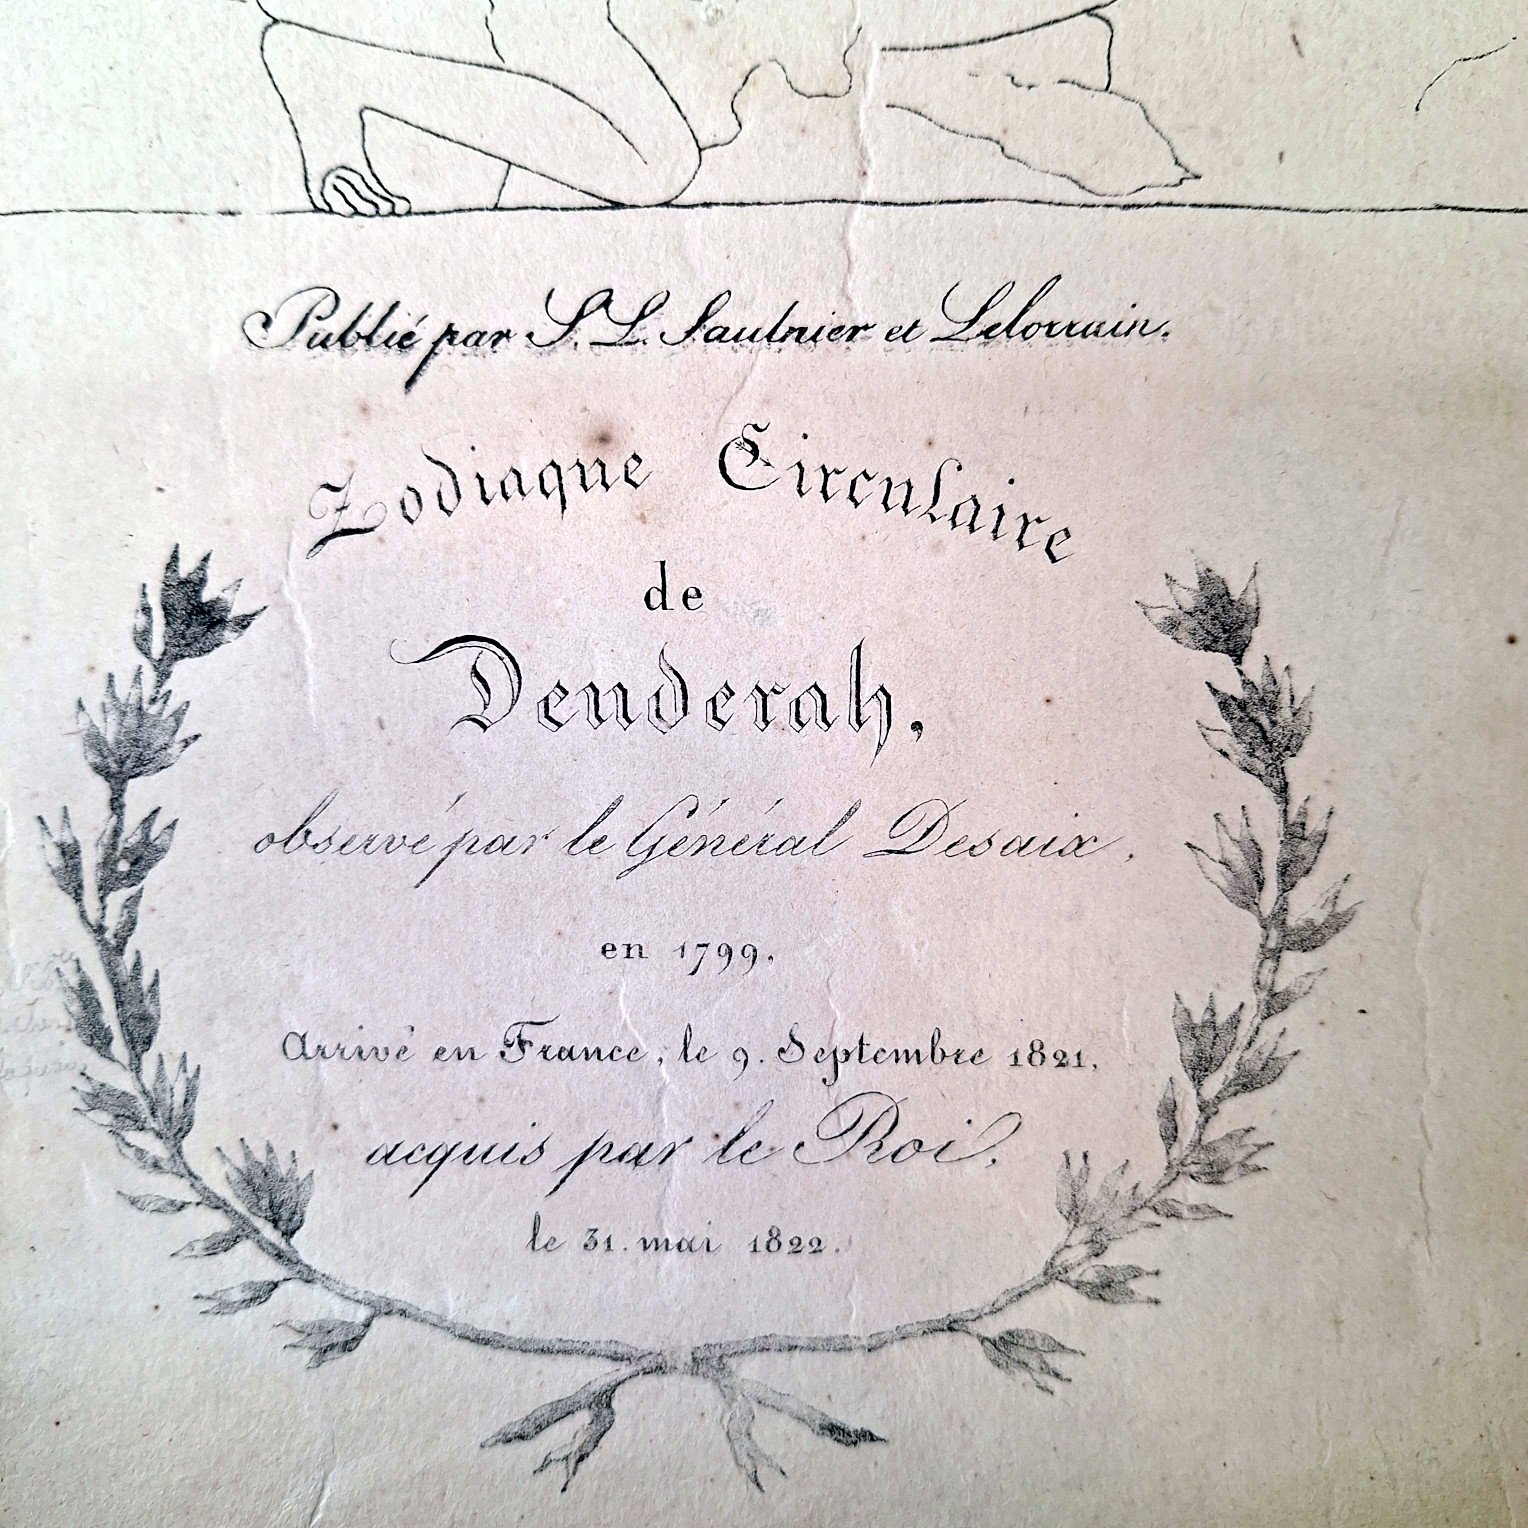 Publié par S. L. Saulnier et Lelorrain.
Zodiaque Circulaire
de
Denderah,
observé par le Général Desaix,
en 1799.
Arrivé en France, le 9. Septembre 1821,
acquis par le Roi,
le 31. mai 1822.